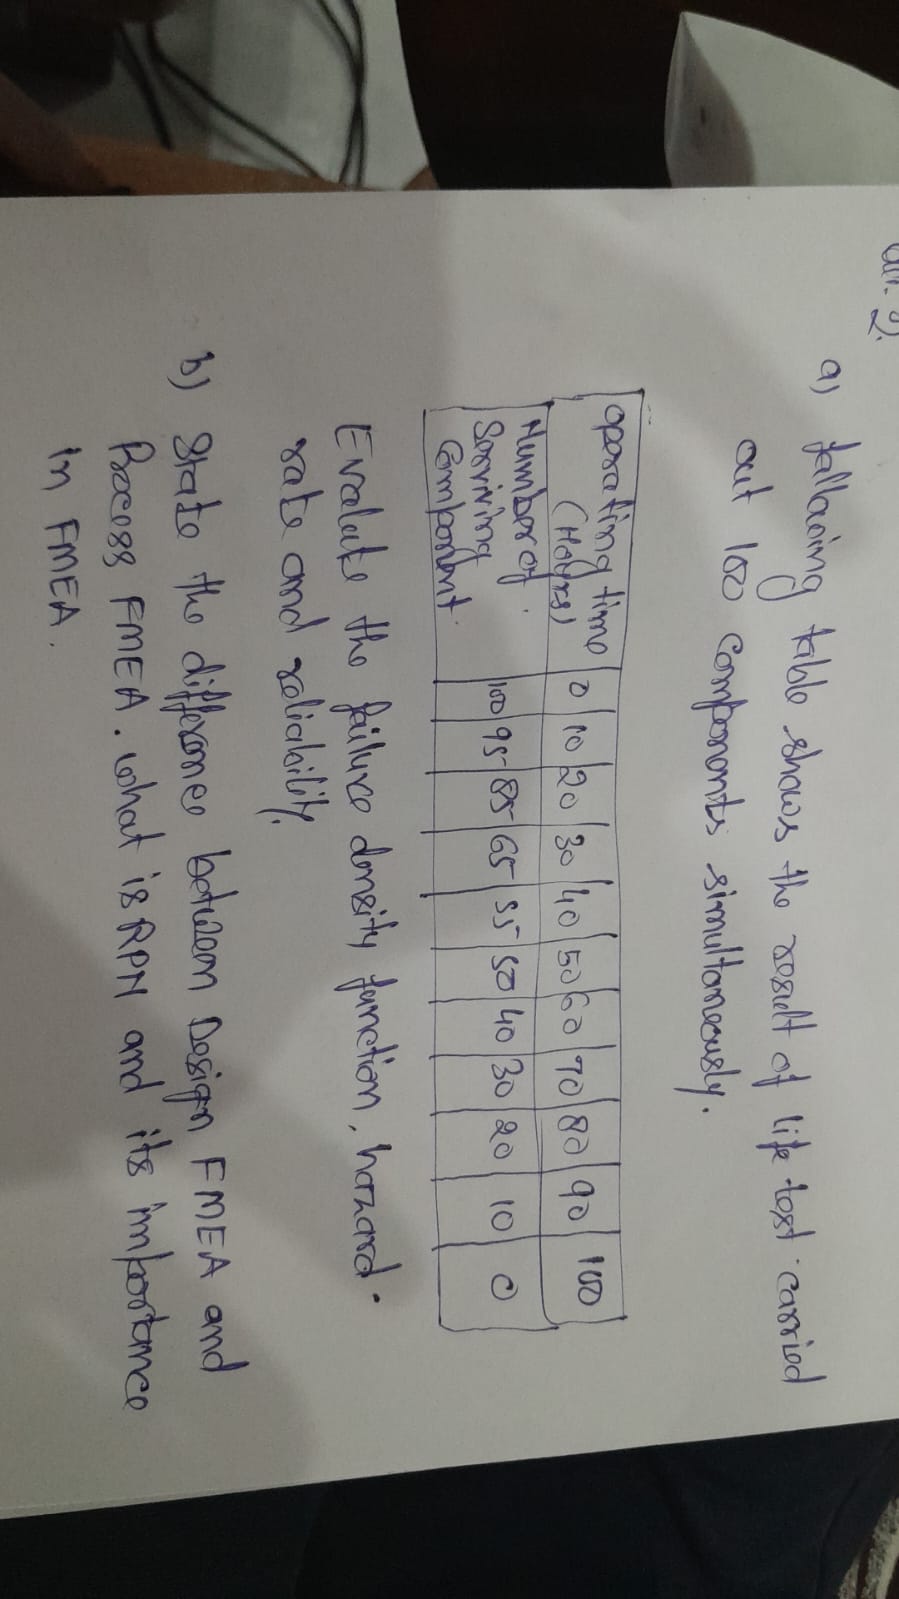 2.
a) following table shows the result of life test carried
out 100 components simultaneously.
operating time (Hours) 0 10 20 30 40 50 60 70 80 90 100
Number of Surviving Component. 100 95 85 65 55 50 40 30 20 10 0
Evaluate the failure density function, hazard.
rate and reliability.
b) State the difference between Design FMEA and
Process FMEA. what is RPN and its importance
in FMEA.